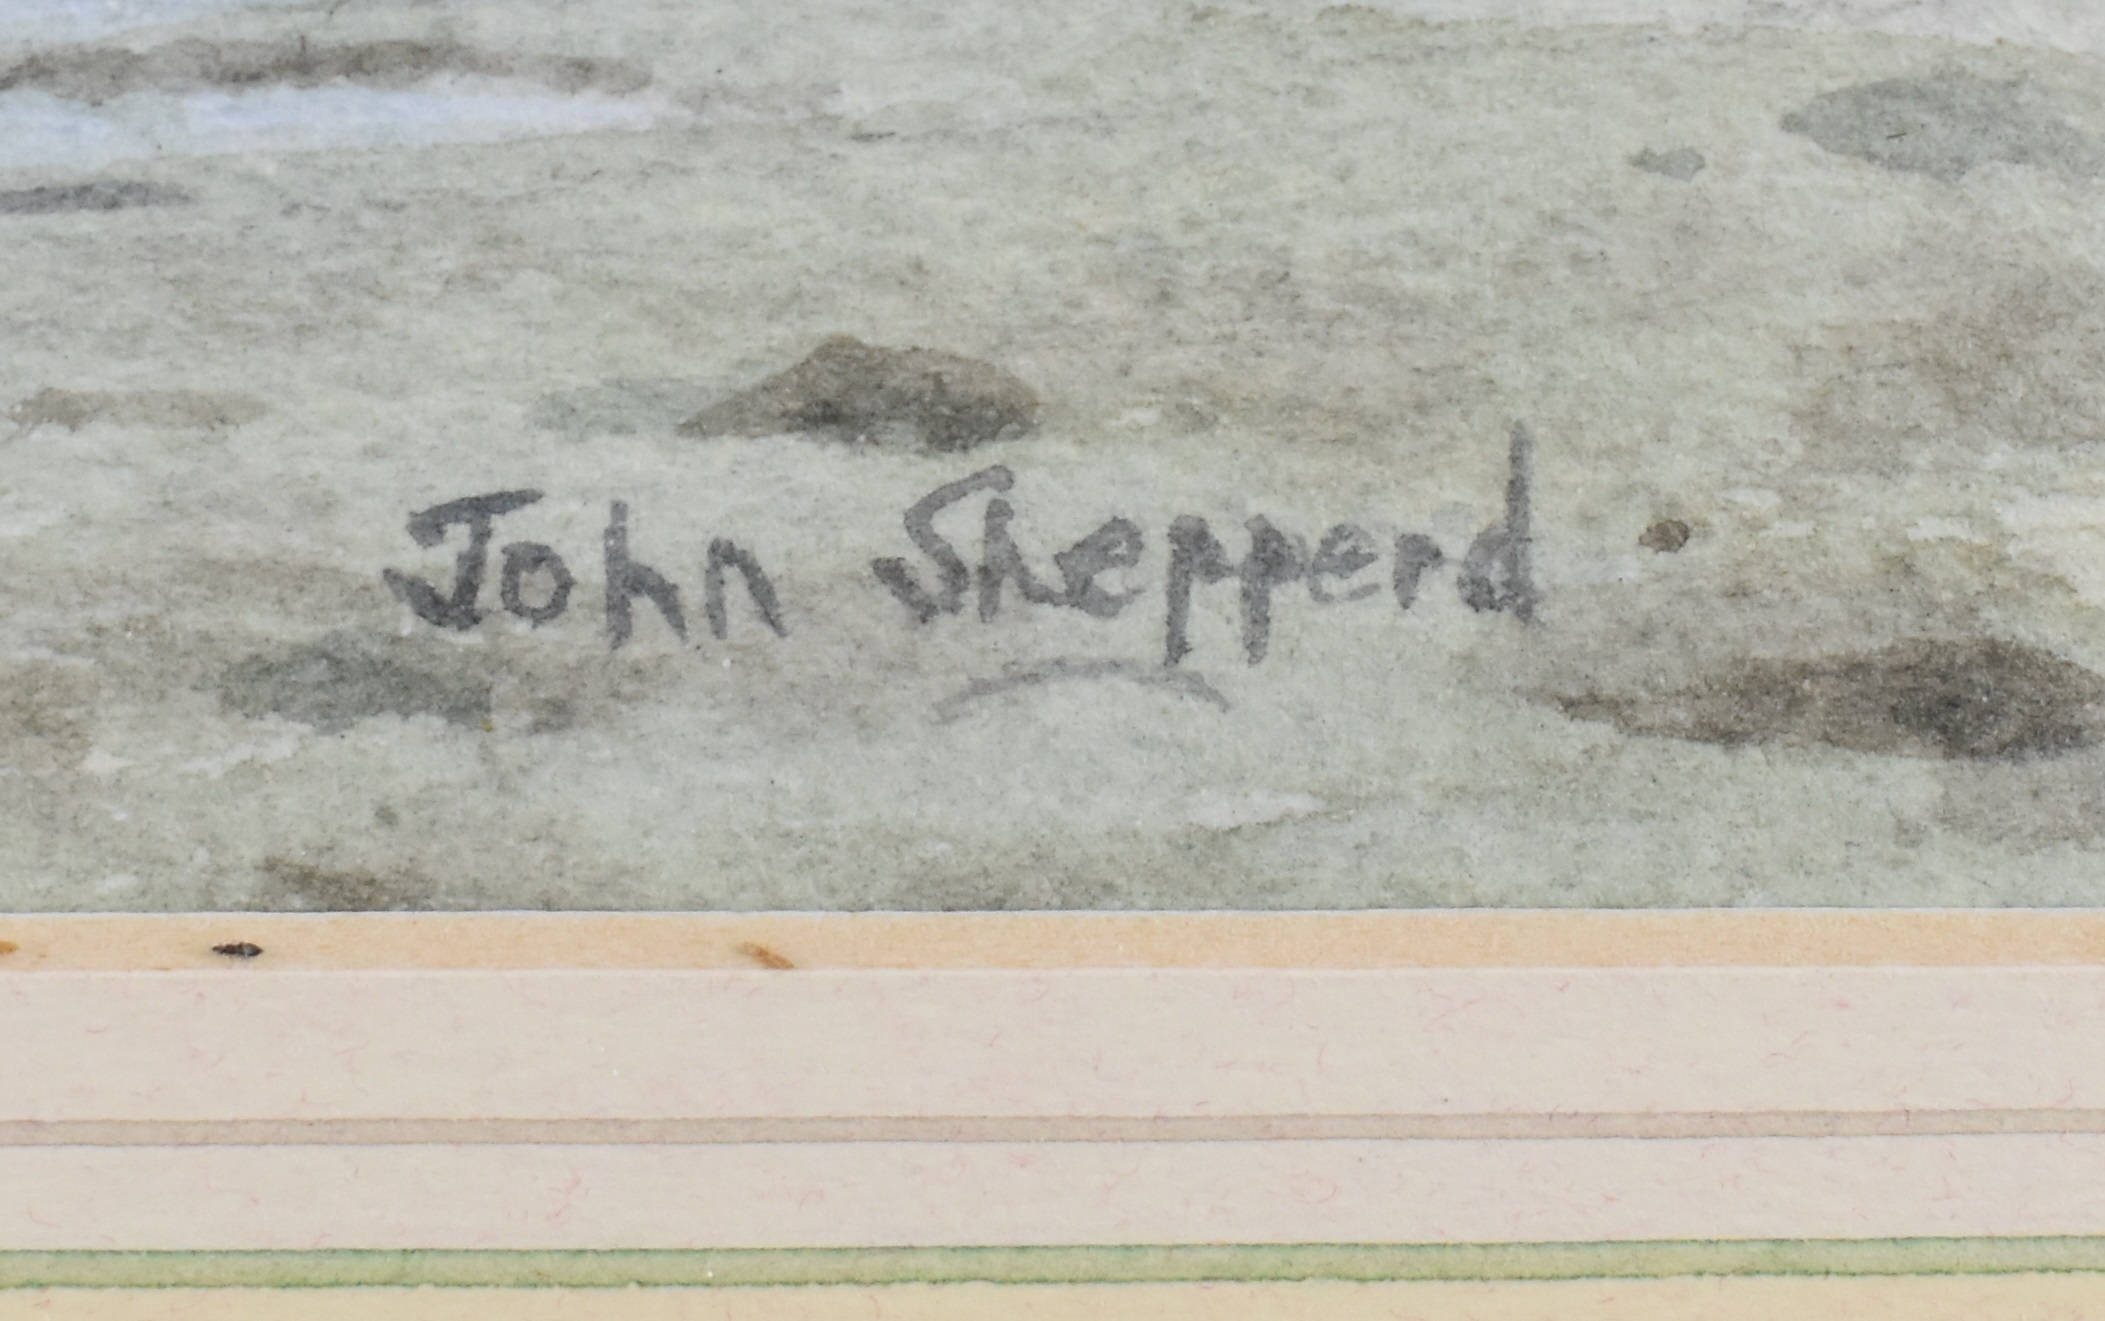 John Shepperd